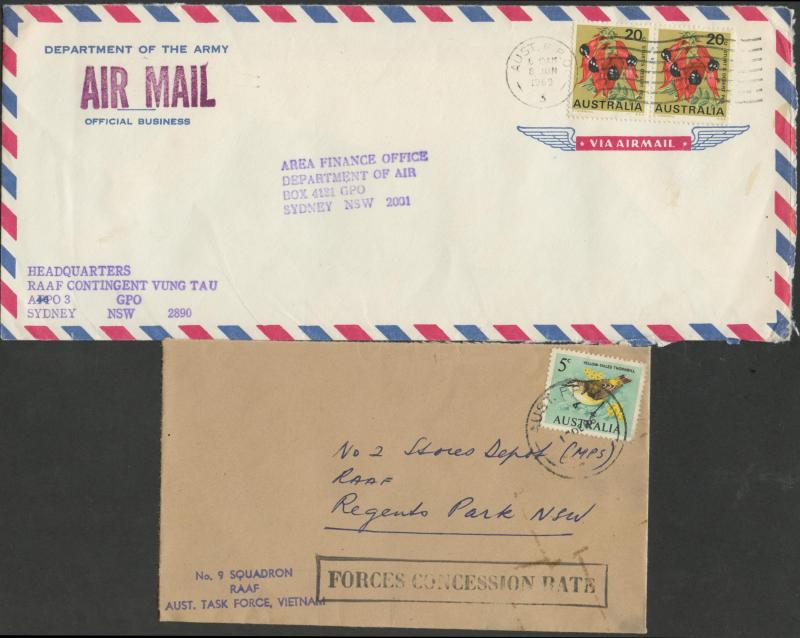 DEPARTMENT OF THE ARMY
AIR MAIL
OFFICIAL BUSINESS
AUST. F.P.O.
8 JUN
1969
3
20c
AUSTRALIA
20c
AUSTRALIA
VIA AIRMAIL
AREA FINANCE OFFICE
DEPARTMENT OF AIR
BOX 4121 GPO
SYDNEY NSW 2001
HEADQUARTERS
RAAF CONTINGENT VUNG TAU
PO 3 GPO
SYDNEY NSW 2890
5c
YELLOW-TAILED THORNBILL
AUSTRALIA
No 2 Stores Depot (MPS)
RAAF
Regents Park NSW
No. 9 SQUADRON
RAAF
AUST. TASK FORCE, VIETNAM
FORCES CONCESSION RATE